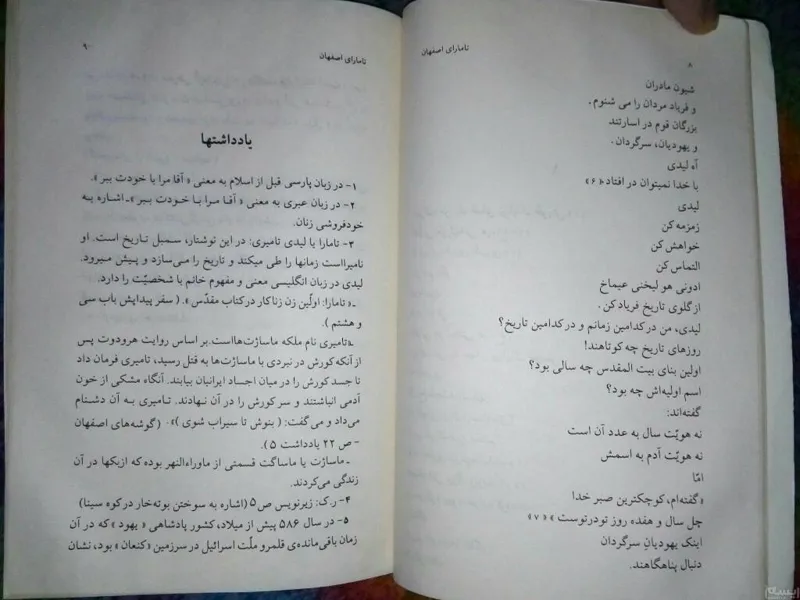 ۸
تامارای اصفهان
شیون مادران
و فریاد مردان را می شنوم.
بزرگان قوم در اسارتند
و یهودیان، سرگردان.
آه لیدی
با خدا نمیتوان در افتاد «۶»
لیدی
زمزمه کن
خواهش کن
التماس کن
ادونی هو لیخنی عیماخ
از گلوی تاریخ فریاد کن.
لیدی، من در کدامین زمانم و در کدامین تاریخ؟
روزهای تاریخ چه کوتاهند!
اولین بنای بیت المقدس چه سالی بود؟
اسم اولیه‌اش چه بود؟
گفته‌اند:
نه هویّت سال به عدد آن است
نه هویّت آدم به اسمش
امّا
«گفته‌ام، کوچکترین صبر خدا
چل سال و هفده روز تودرتوست» «۷»
اینک یهودیانِ سرگردان
دنبال پناهگاهند.
۹
تامارای اصفهان
یادداشتها
۱- در زبان پارسی قبل از اسلام به معنی «آقا مرا با خودت ببر».
۲- در زبان عبری به معنی «آقا مرا با خودت ببر» ـ اشاره به
خودفروشی زنان.
۳- تامارا یا لیدی تامیری: در این نوشتار، سمبل تاریخ است. او
نامیرااست زمانها را طی میکند و تاریخ را می‌سازد و پیش میرود.
لیدی در زبان انگلیسی معنی و مفهوم خانم با شخصیّت را دارد.
ـ «تامارا: اولّین زن زناکار در کتاب مقدّس». ( سفر پیدایش باب سی
و هشتم ).
ـ تامیری نام ملکه ماساژت‌هااست. بر اساس روایت هرودوت پس
از آنکه کورش در نبردی با ماساژت‌ها به قتل رسید، تامیری فرمان داد
تا جسد کورش را در میان اجساد ایرانیان بیابند. آنگاه مشکی از خون
آدمی انباشتند و سر کورش را در آن نهادند. تامیری به آن دشنام
می‌داد و می‌گفت: ( بنوش تا سیراب شوی )». (گوشه‌های اصفهان
- ص ۲۲ یادداشت ۵ ).
ـ ماساژت یا ماساگت قسمتی از ماوراءالنهر بوده که ازبکها در آن
زندگی می‌کردند.
۴- ر.ک: زیرنویس ص۵ (اشاره به سوختن بوته‌خار در کوه سینا)
۵- در سال ۵۸۶ پیش از میلاد، کشور پادشاهی «یهود» که در آن
زمان باقی‌مانده‌ی قلمرو ملّت اسرائیل در سرزمین «کنعان» بود، نشان